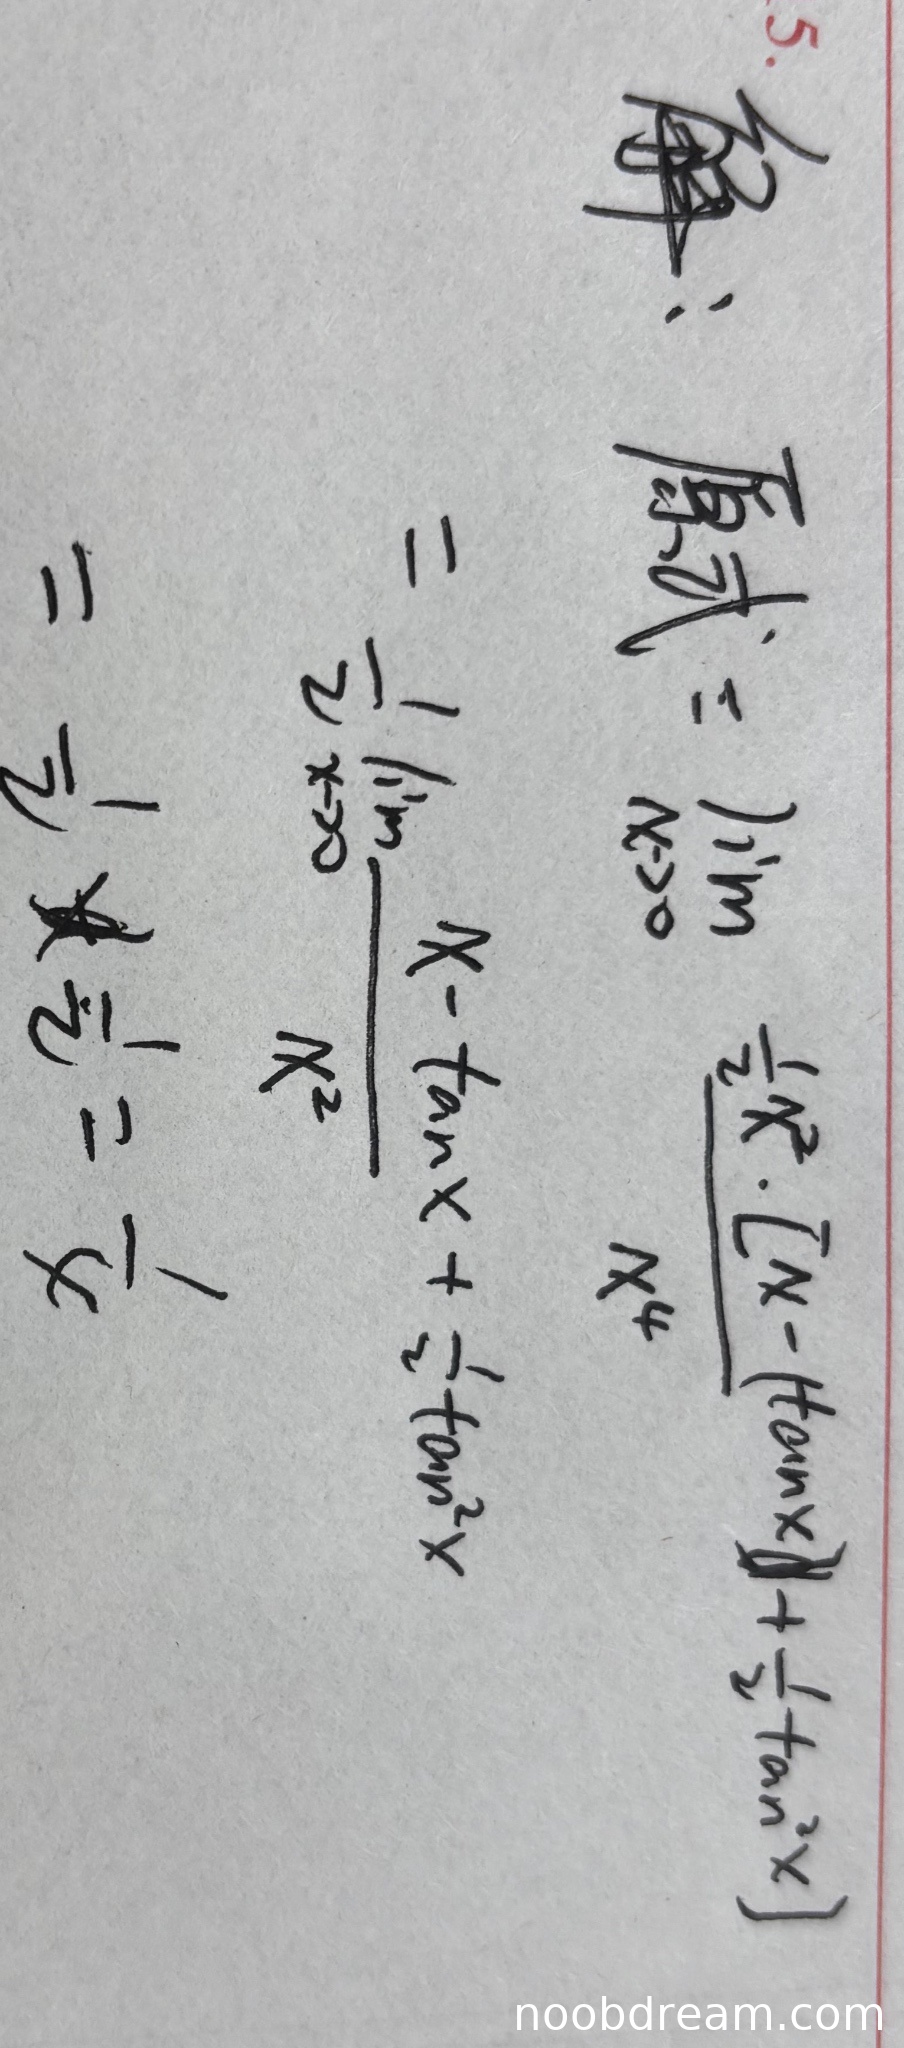 5.
解: 原式 = lim x→0 (1/2 x² · [x - tanx + 1/2 tan²x]) / x⁴
= 1/2 lim x→0 (x - tanx + 1/2 tan²x) / x²
= 1/2 × 1/2 = 1/4
noobdream.com